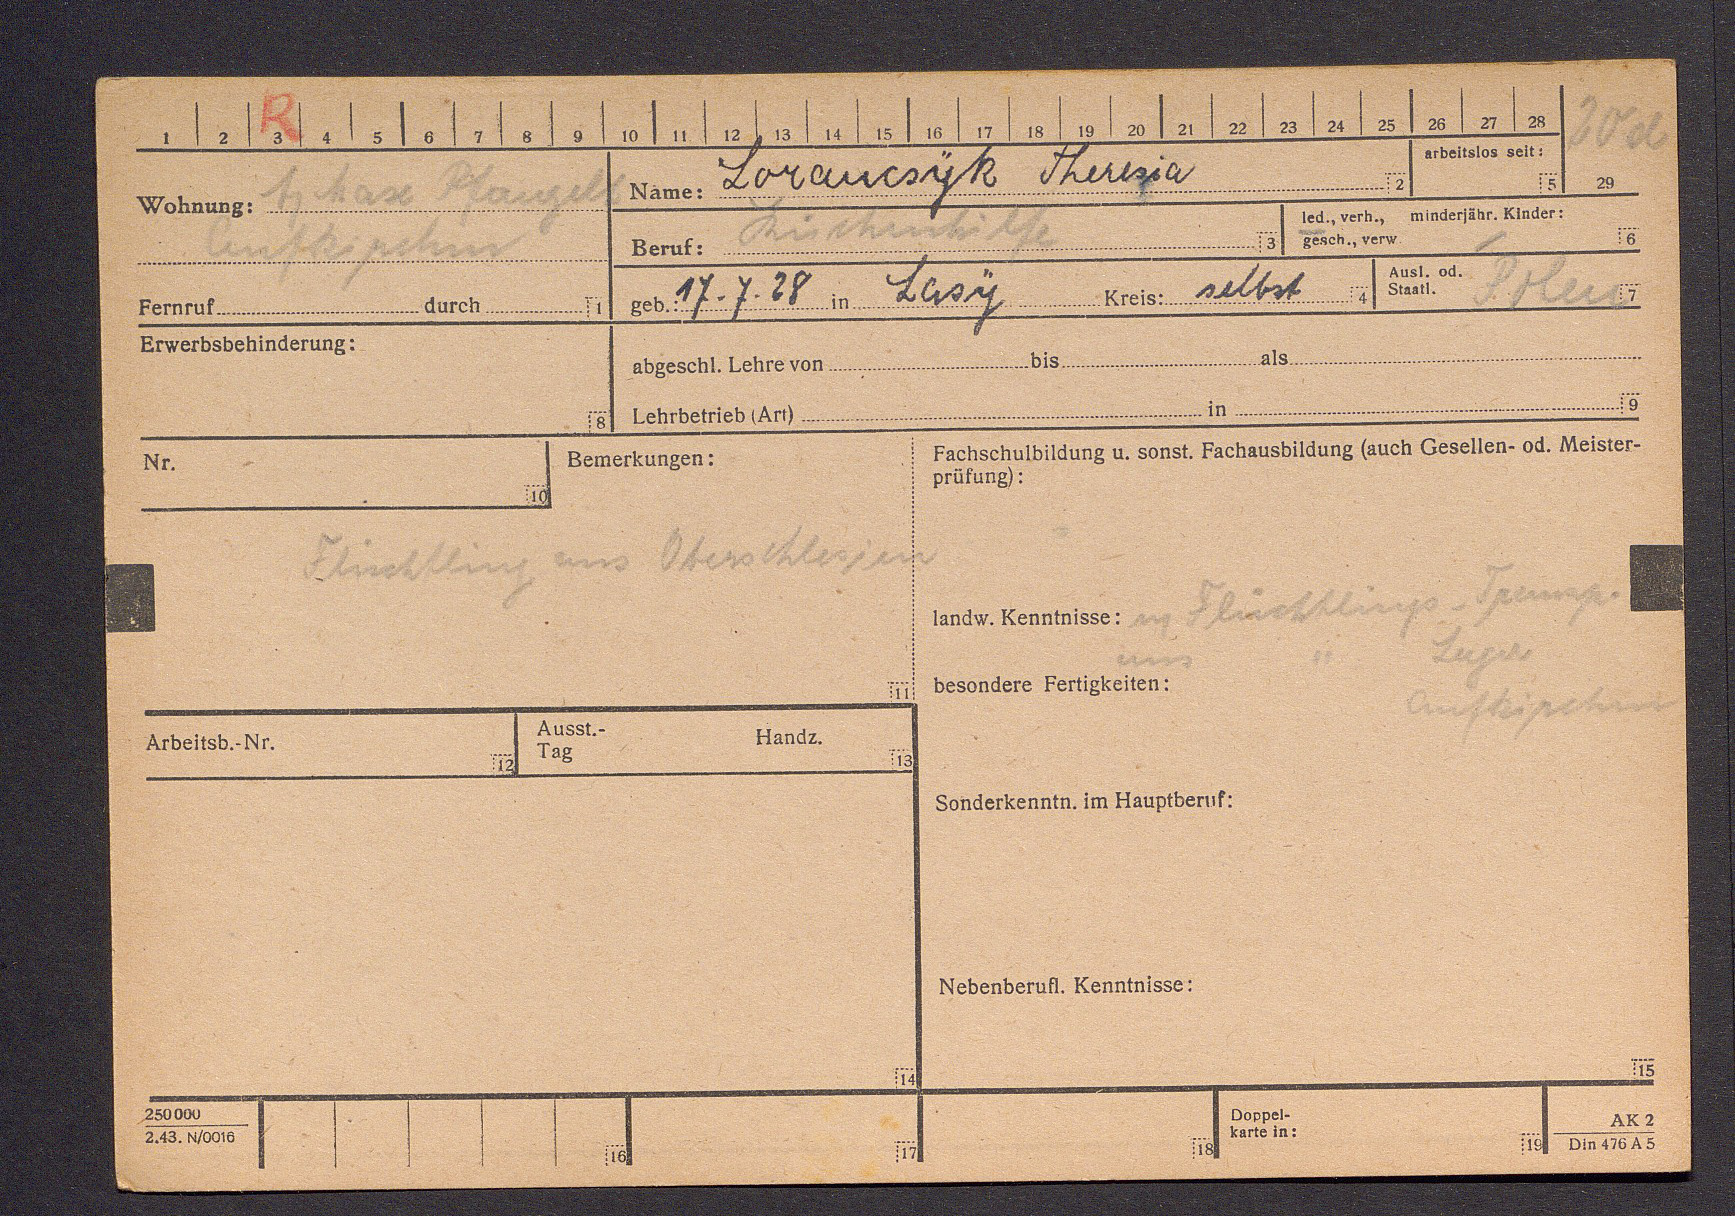 R
1 2 3 4 5 6 7 8 9 10 11 12 13 14 15 16 17 18 19 20 21 22 23 24 25 26 27 28
20 d
29
arbeitslos seit: 5
Wohnung: b/ Max
Aufkirchen
Name: Lorancsÿk Theresia 2
Beruf: Küchenhilfe 3
led., verh., minderjähr. Kinder:
gesch., verw. / 6
Fernruf durch 1
geb.: 17.7.28 in Lasÿ Kreis: selbst 4
Ausl. od.
Staatl. Polen 7
Erwerbsbehinderung:
8
abgeschl. Lehre von bis als
Lehrbetrieb (Art) in 9
Nr.
10
Bemerkungen:
Flüchtling aus Oberschlesien
11
Fachschulbildung u. sonst. Fachausbildung (auch Gesellen- od. Meister-
prüfung):
landw. Kenntnisse: Flüchtlings-
aus " Lager
besondere Fertigkeiten:
Aufkirchen
Arbeitsb.-Nr. 12
Ausst.-
Tag
Handz. 13
Sonderkenntn. im Hauptberuf:
Nebenberufl. Kenntnisse:
14
15
250 000
2.43. N/0016
16
17
18
Doppel-
karte in: 19
AK 2
Din 476 A 5